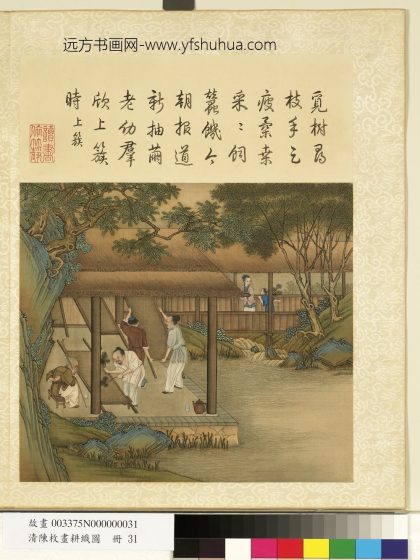 远方书画网-www.yfshuhua.com
覓樹尋
枝手
疲桑葉
采〻飼
蠶饑今
朝報道
新抽繭
老幼羣
欣上簇
時 上簇
故畫 003375N000000031
清陳枚畫耕織圖 冊 31